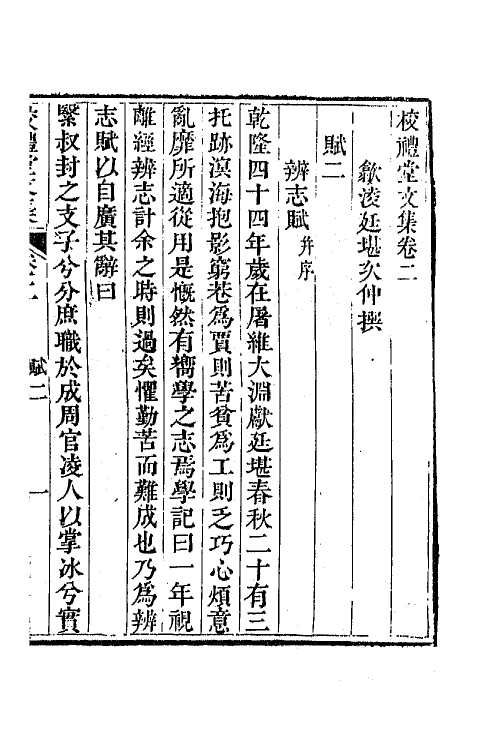 校禮堂文集卷二
歙淩廷堪次仲撰
賦二
辨志賦并序
乾隆四十四年歲在屠維大淵獻廷堪春秋二十有三
托跡溟海抱影窮巷為賈則苦貧為工則乏巧心煩意
亂靡所適從用是慨然有嚮學之志焉學記曰一年視
離經辨志計余之時則過矣懼勤苦而難成也乃為辨
志賦以自廣其辭曰
繄叔封之支子兮分庶職於成周官凌人以掌冰兮實
賦二
一